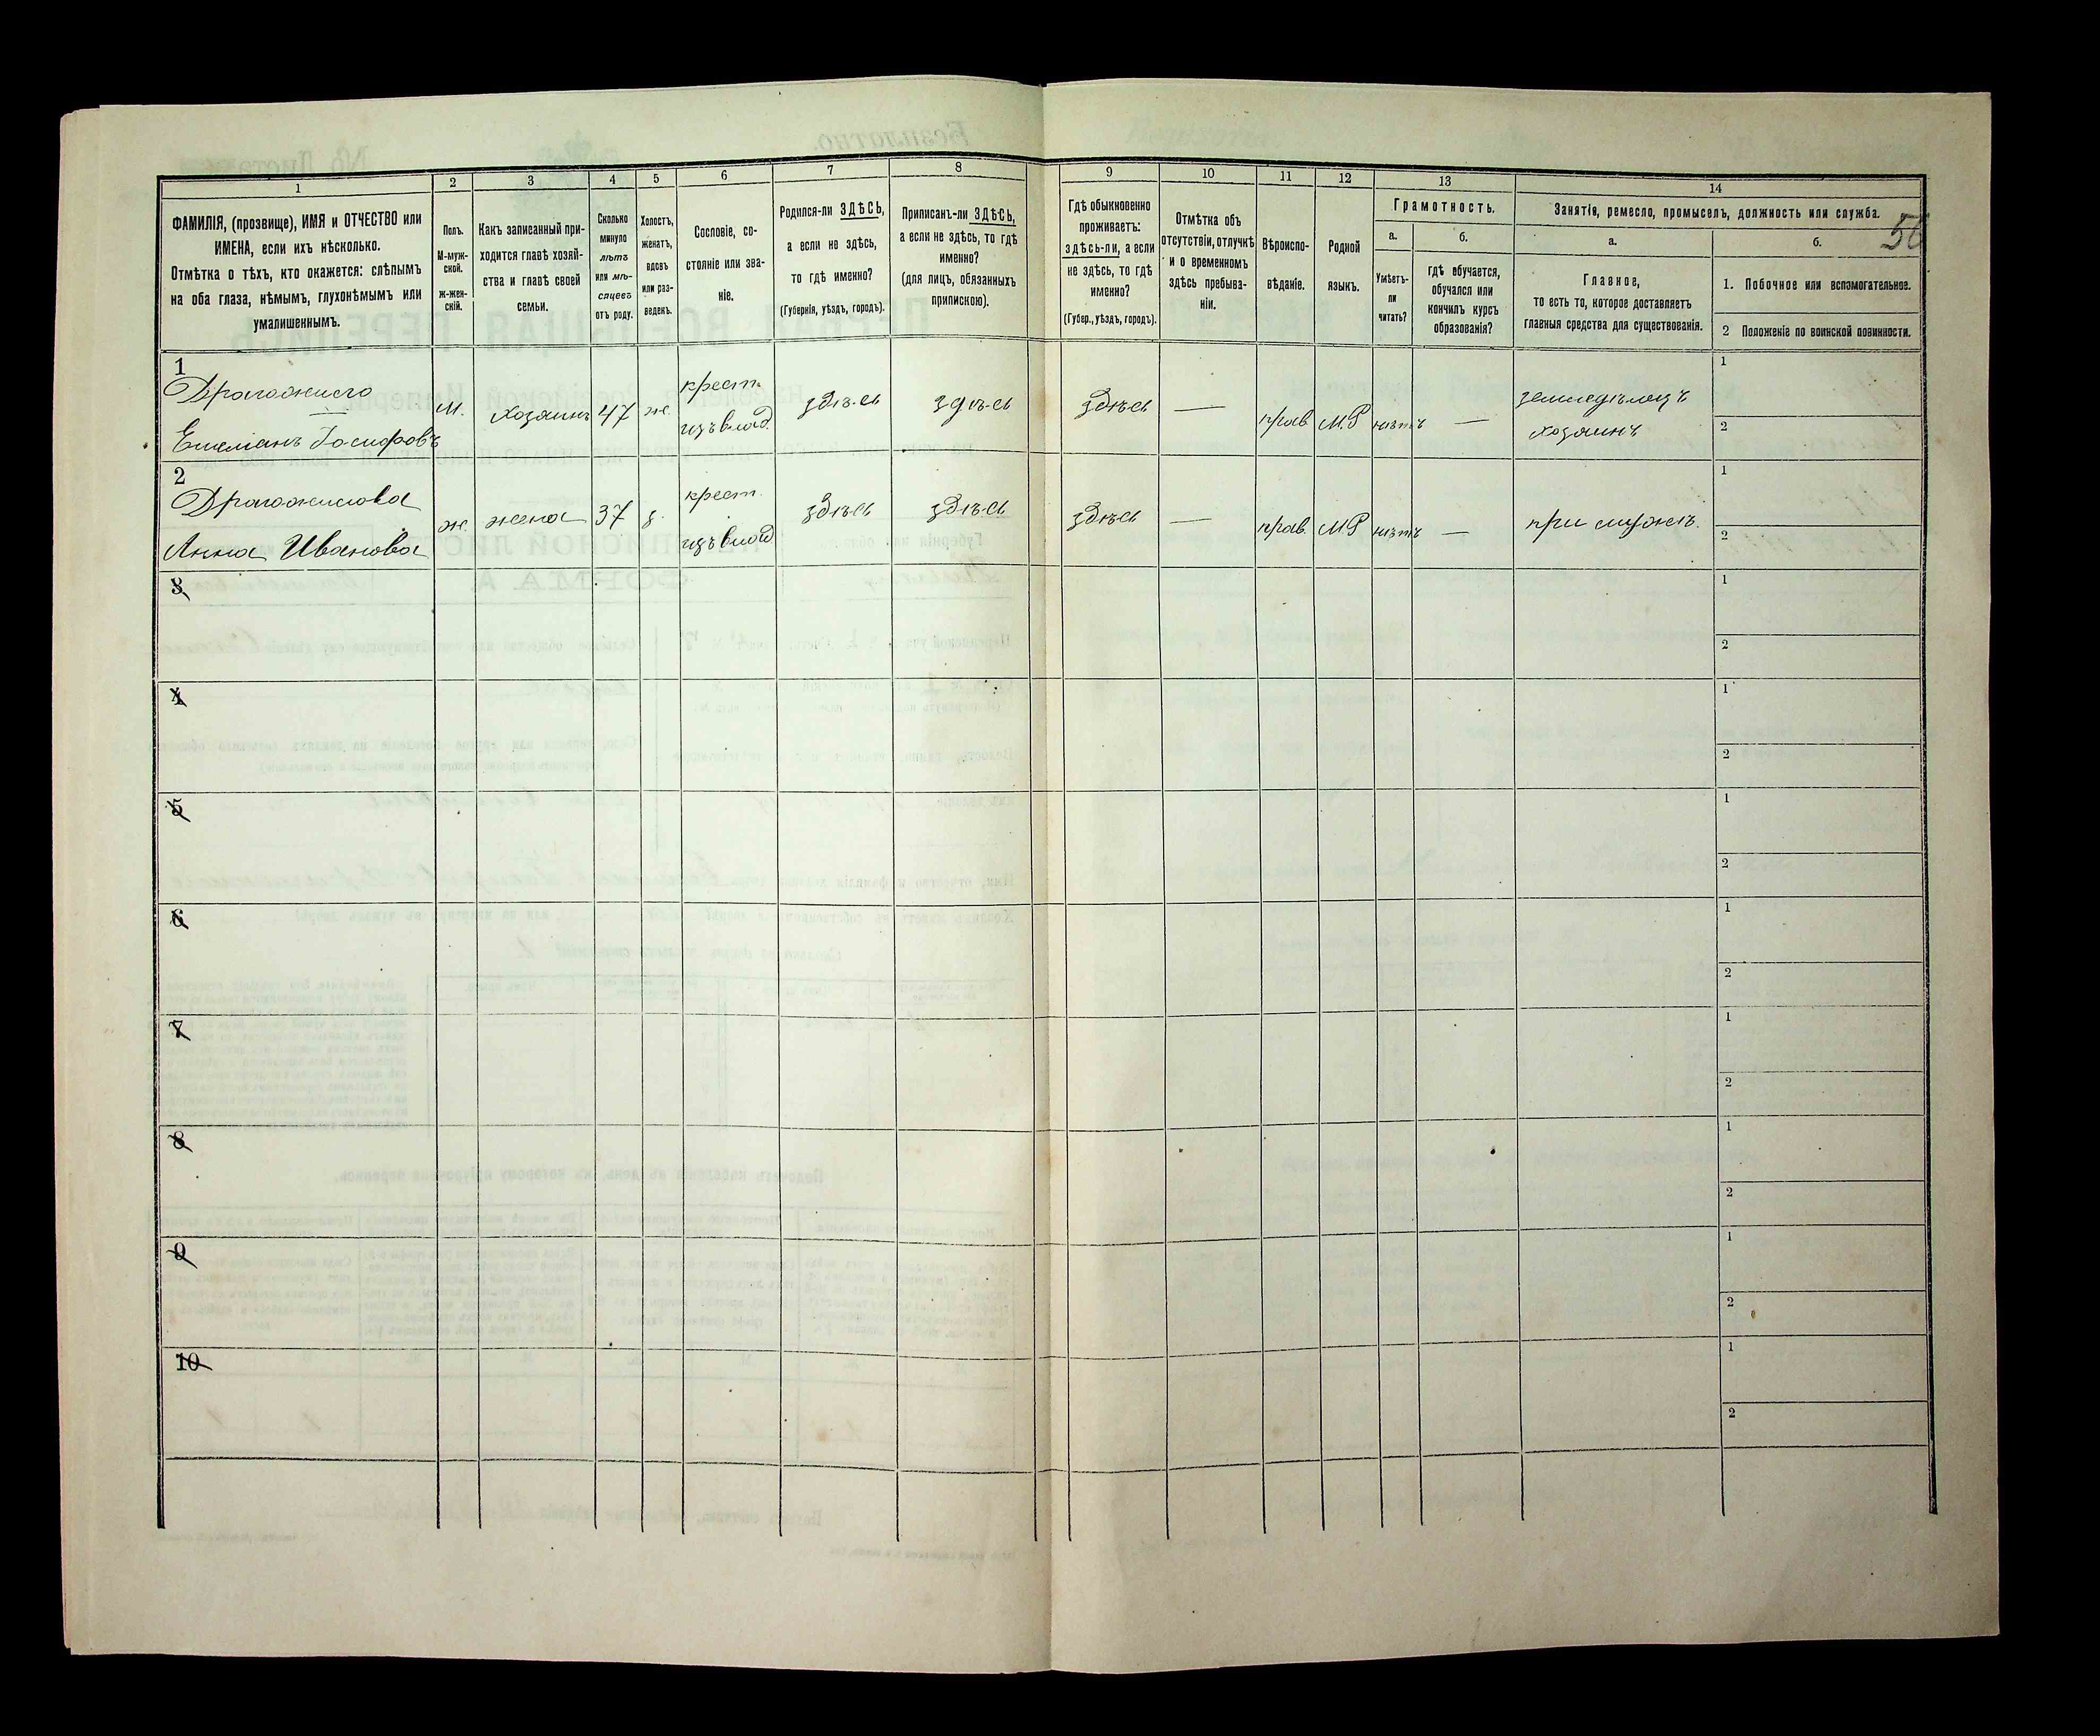 56
1 2 3 4 5 6 7 8 9 10 11 12 13 14
ФАМИЛІЯ, (прозвище), ИМЯ и ОТЧЕСТВО или
ИМЕНА, если ихъ нѣсколько.
Отмѣтка о тѣхъ, кто окажется: слѣпымъ
на оба глаза, нѣмымъ, глухонѣмымъ или
умалишеннымъ.
Полъ.
М-муж-
ской.
ж-жен-
скій.
Какъ записанный при-
ходится главѣ хозяй-
ства и главѣ своей
семьи.
Сколько
минуло
лѣтъ
или мѣ-
сяцевъ
отъ роду.
Холостъ,
женатъ,
вдовъ
или раз-
веденъ.
Сословіе, со-
стояніе или зва-
ніе.
Родился-ли ЗДѢСЬ,
а если не здѣсь,
то гдѣ именно?
(Губернія, уѣздъ, городъ).
Приписанъ-ли ЗДѢСЬ,
а если не здѣсь, то гдѣ
именно?
(для лицъ, обязанныхъ
припискою).
Гдѣ обыкновенно
проживаетъ:
здѣсь-ли, а если
не здѣсь, то гдѣ
именно?
(Губер., уѣздъ, городъ).
Отмѣтка объ
отсутствіи, отлучкѣ
и о временномъ
здѣсь пребыва-
ніи.
Вѣроиспо-
вѣданіе.
Родной
языкъ.
Грамотность.
а.
Умѣетъ-
ли
читать?
б.
гдѣ обучается,
обучался или
кончилъ курсъ
образованія?
Занятія, ремесло, промыселъ, должность или служба.
а.
Главное,
то есть то, которое доставляетъ
главныя средства для существованія.
б.
1. Побочное или вспомогательное.
2 Положеніе по воинской повинности.
1
Драгожило
Емеліанъ Іосифовъ
м. хозяинъ 47 ж. крест.
изъ влад.
здѣсь здѣсь здѣсь — прав М.Р нѣтъ — земледѣлецъ
хозяинъ
1
2
2
Драгожилова
Анна Иванова
ж. жена 37 з. крест.
изъ влад
здѣсь здѣсь здѣсь — прав. М.Р нѣтъ — при мужѣ.
1
2
3
1
2
4
1
2
5
1
2
6
1
2
7
1
2
8
1
2
9
1
2
10
1
2